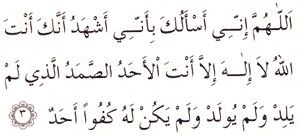 اَللّٰهُمَّ إِنِّـي أَسْأَلُكَ بِأَنِّـي أَشْهَدُ أَنَّكَ أَنْتَ
اللهُ لَا إِلٰـهَ إِلاَّ أَنْتَ الْأَحَدُ الصَّمَدُ الَّذِي لَمْ
يَلِدْ وَلَمْ يُولَدْ وَلَمْ يَكُنْ لَهُ كُفُواً أَحَدٌ ٣